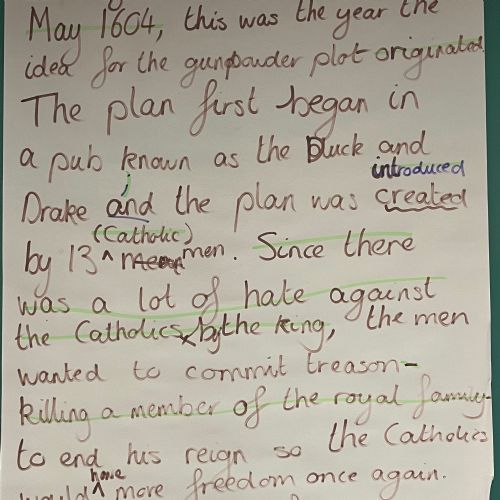 May 1604, this was the year the
idea for the gunpowder plot originated.
The plan first began in
a pub known as the Duck and
introduced
Drake and the plan was created
(Catholic)
by 13 ^ men. Since there
was a lot of hate against
the Catholics by the king, the men
wanted to commit treason-
killing a member of the royal family-
to end his reign so the Catholics
have
would ^ more freedom once again.